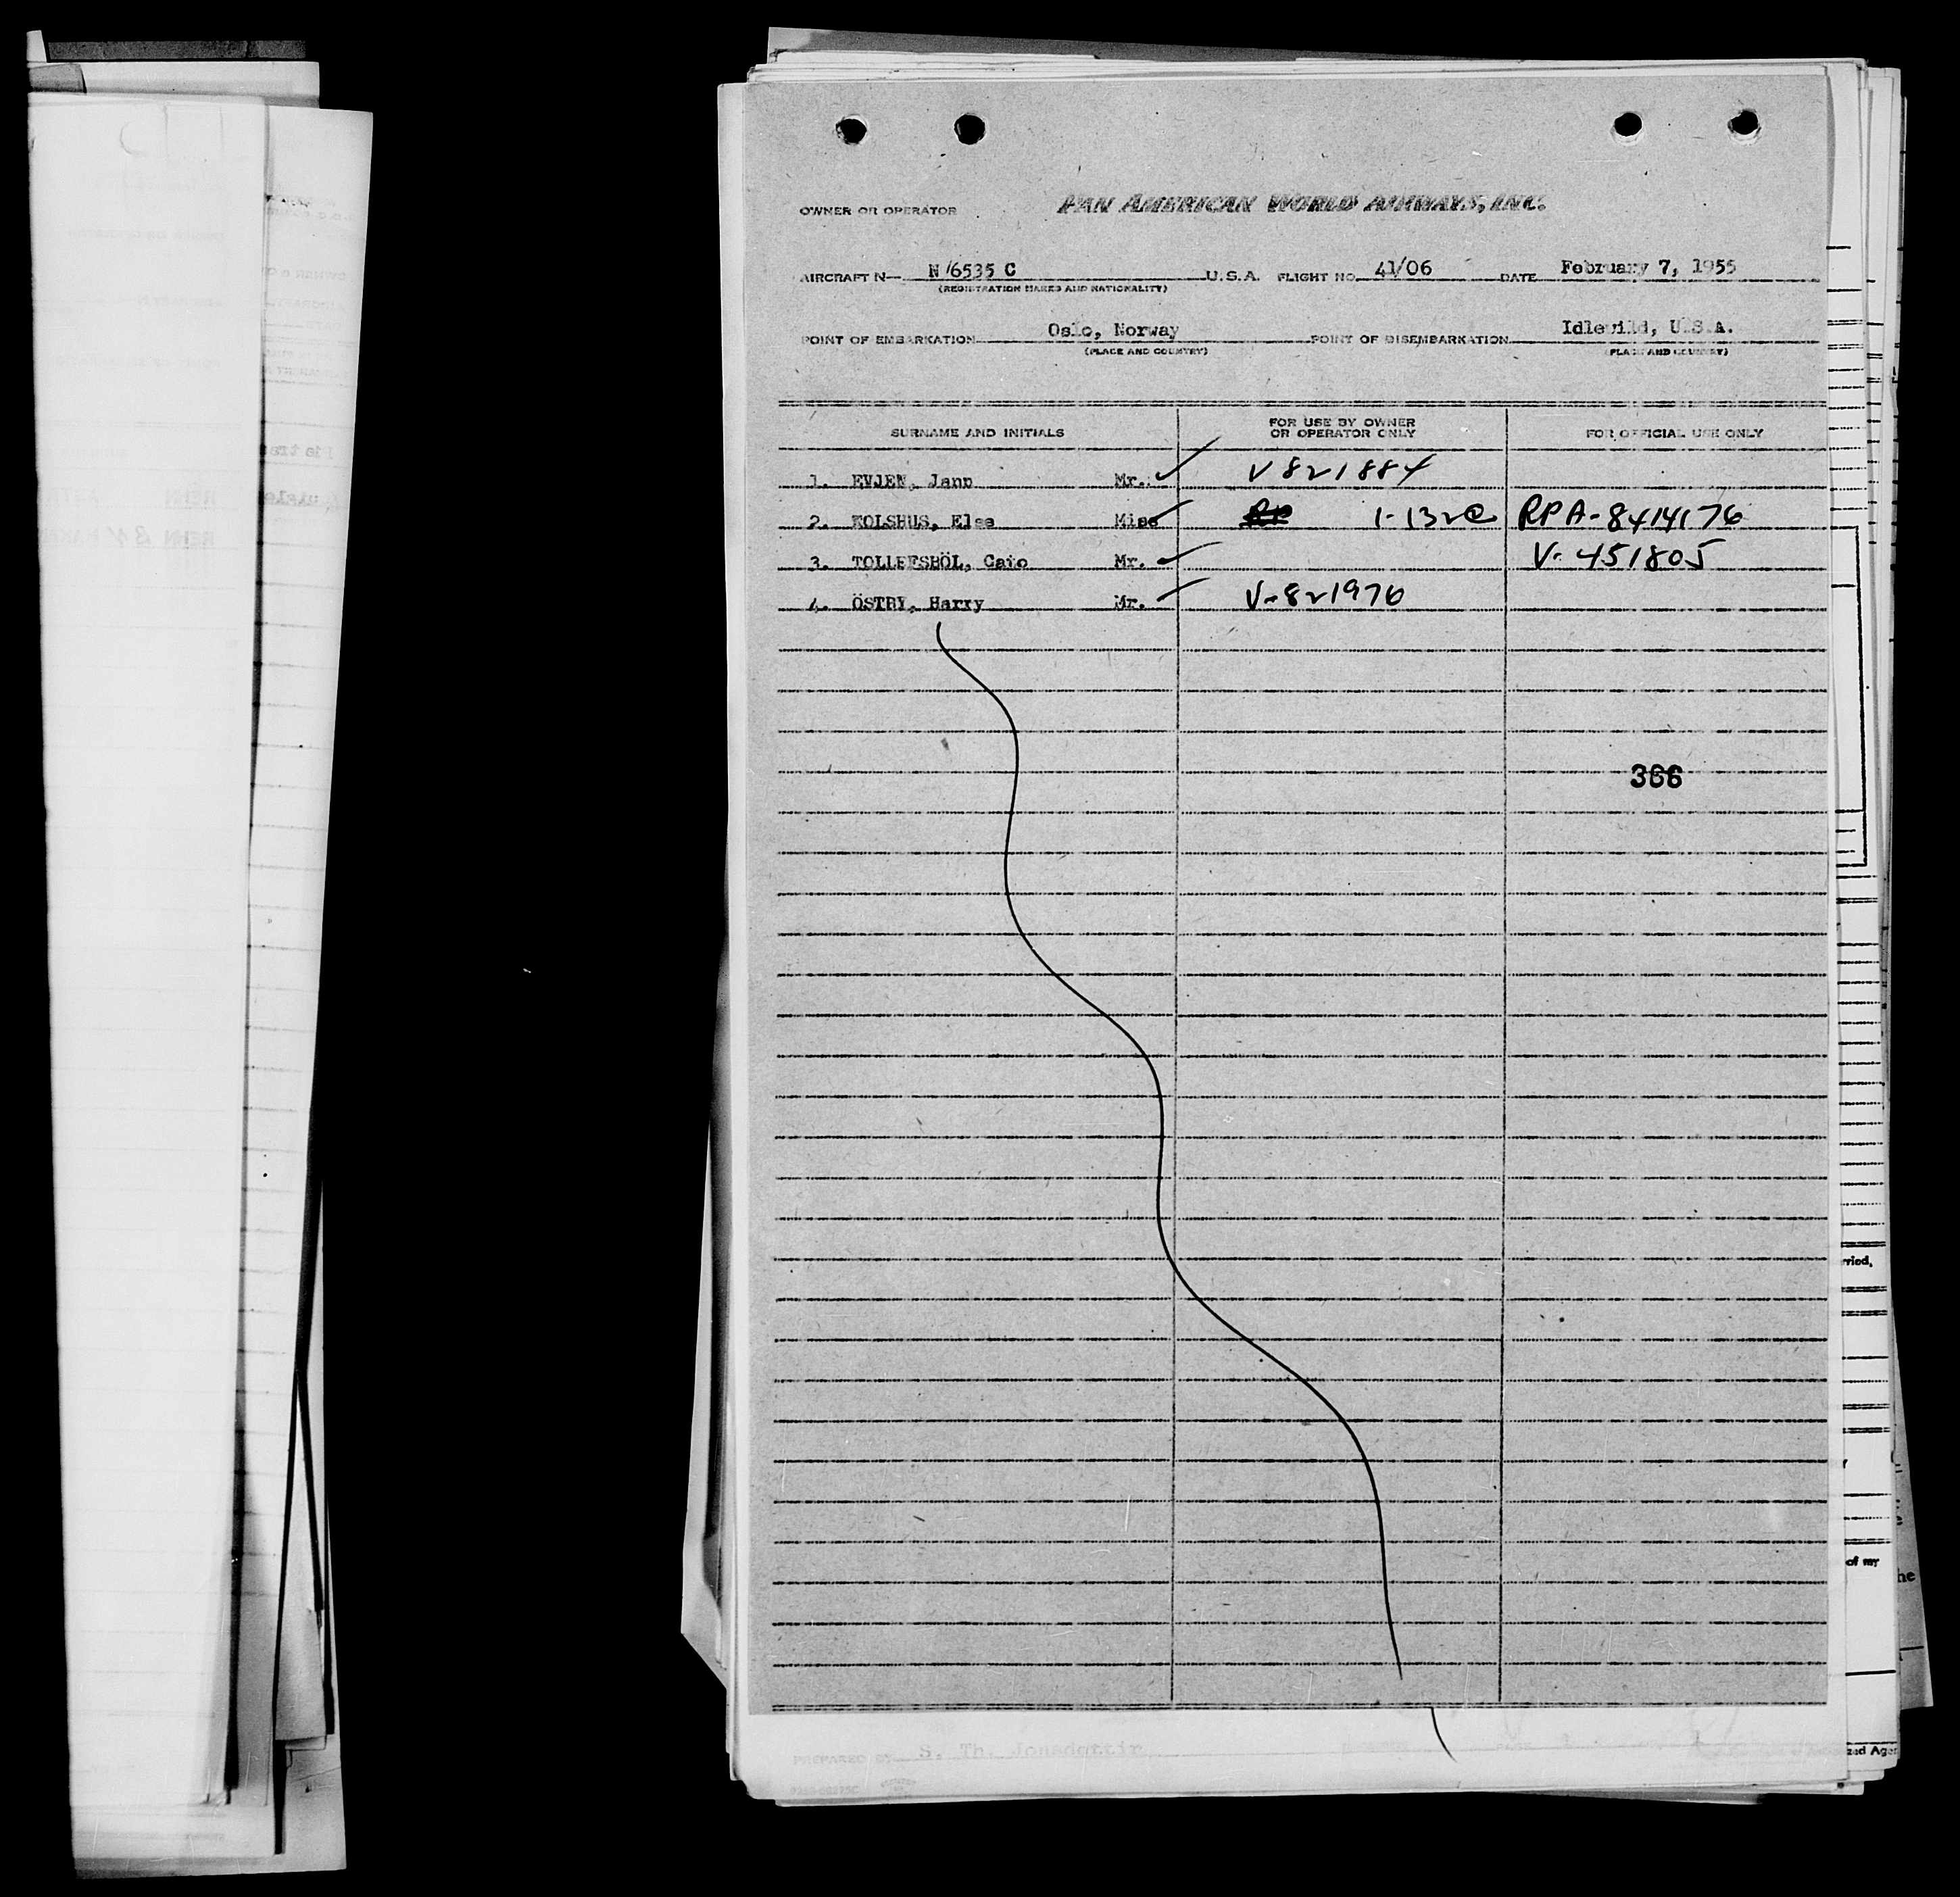 OWNER OR OPERATOR PAN AMERICAN WORLD AIRWAYS, INC.
AIRCRAFT N— N 6535 C U.S.A. FLIGHT NO. 41/06 DATE February 7, 1955
(REGISTRATION MARKS AND NATIONALITY)
POINT OF EMBARKATION Oslo, Norway POINT OF DISEMBARKATION Idlewild, U.S.A.
(PLACE AND COUNTRY) (PLACE AND COUNTRY)
SURNAME AND INITIALS FOR USE BY OWNER OR OPERATOR ONLY FOR OFFICIAL USE ONLY
1. EVJEN, Mr. V 821884
2. KOLSHUS, Else Miss 1-132 RPA-8414176
3. TOLLEFSBÖL, Cato Mr. V-451805
4. ÖSTBY, Harry Mr. V-821976
366
PREPARED BY S. Th. Jonsdottir PAGE 1
rried,
of my
he
zed Agen